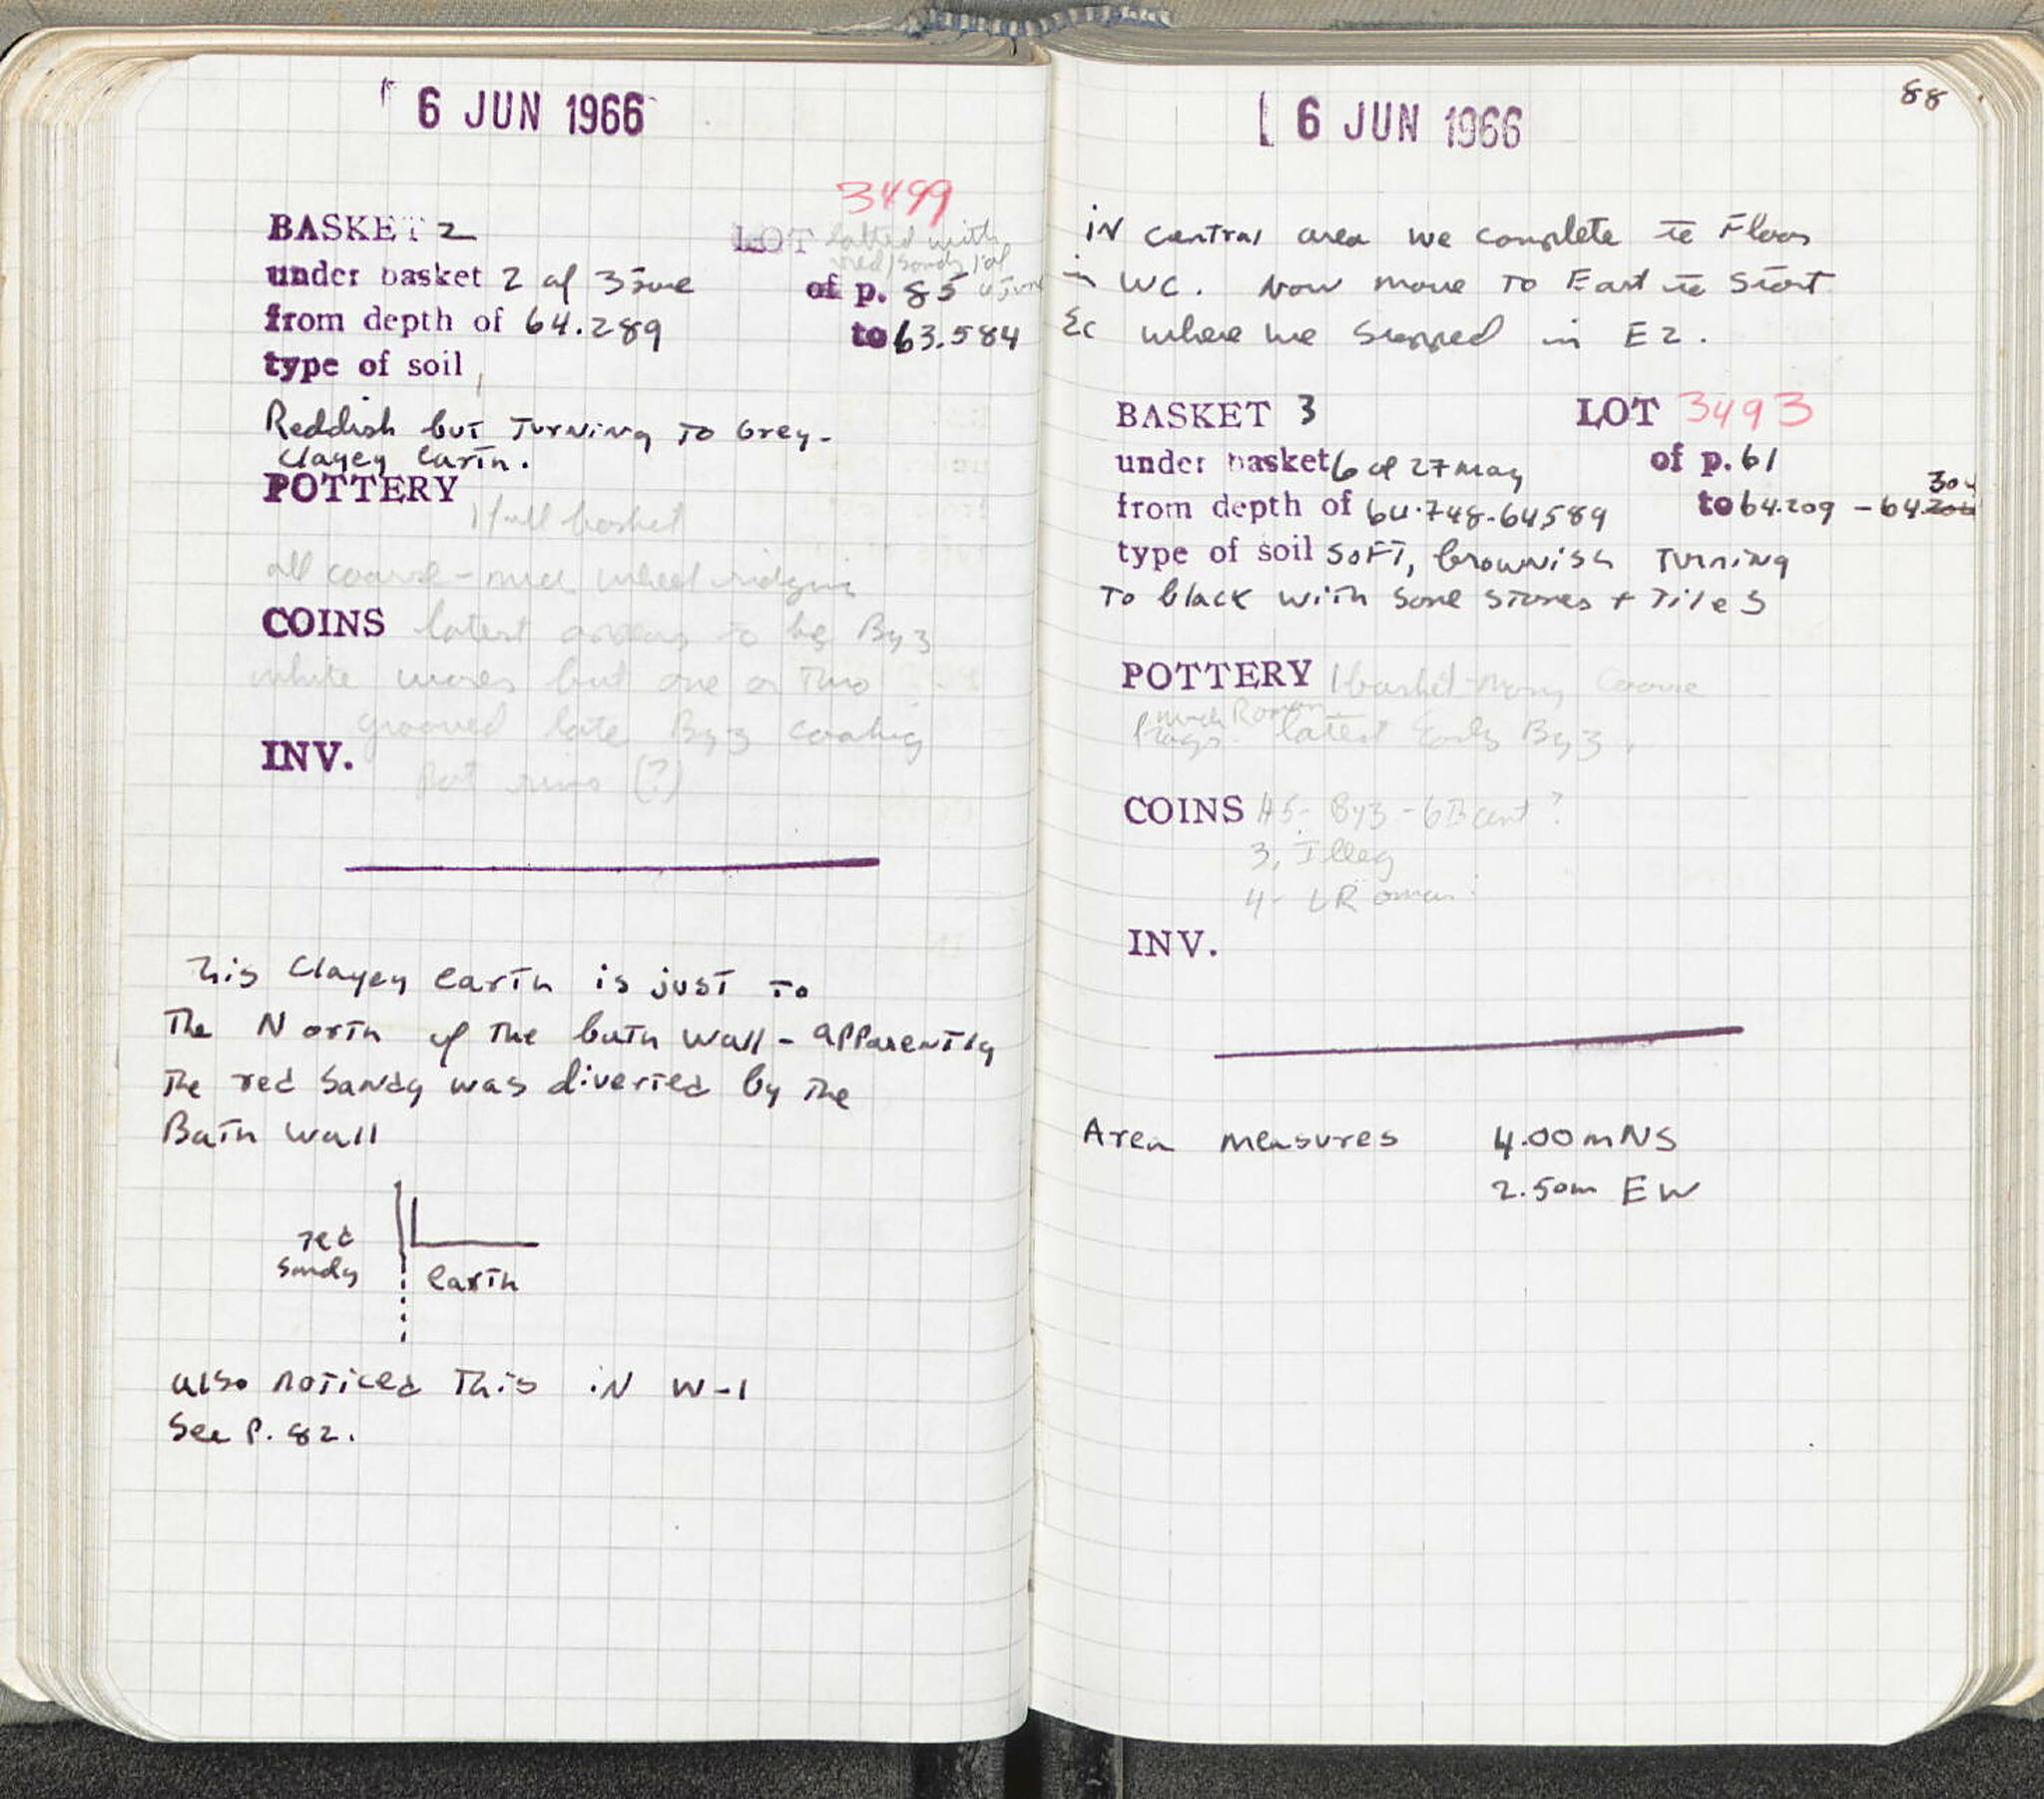 6 JUN 1966
3499
BASKET 2 LOT lotted with
red/sandy 1 of
under basket 2 of 3 June of p. 85 4 June
from depth of 64.289 to 63.584
type of soil
Reddish but Turning To Grey-
Clayey Earth.
POTTERY
1 full basket
all coarse - much wheel ridging
COINS latest appears to be Byz
white wares but one or two
grooved late Byz cooking
INV. pot rims (?)
This Clayey Earth is just To
The North of The bath wall - apparently
The red Sandy was diverted by The
Bath wall
red
Sandy
Earth
also noticed This in W-1
See P. 82.
88
6 JUN 1966
IN central area we complete to Floor
in WC. Now move To East to Start
Ec where we stopped in E2.
BASKET 3 LOT 3493
under basket 6 of 27 May of p. 61
304
from depth of 64.748-64,589 to 64.209 - 64.
type of soil SOFT, brownish Turning
To black with some stones + Tiles
POTTERY 1 basket - many coarse
much Roman
frags. latest Early Byz.
COINS #5- Byz - 6th cent?
3, Illeg
4- LRoman
INV.
Area measures 4.00m NS
2.50m EW